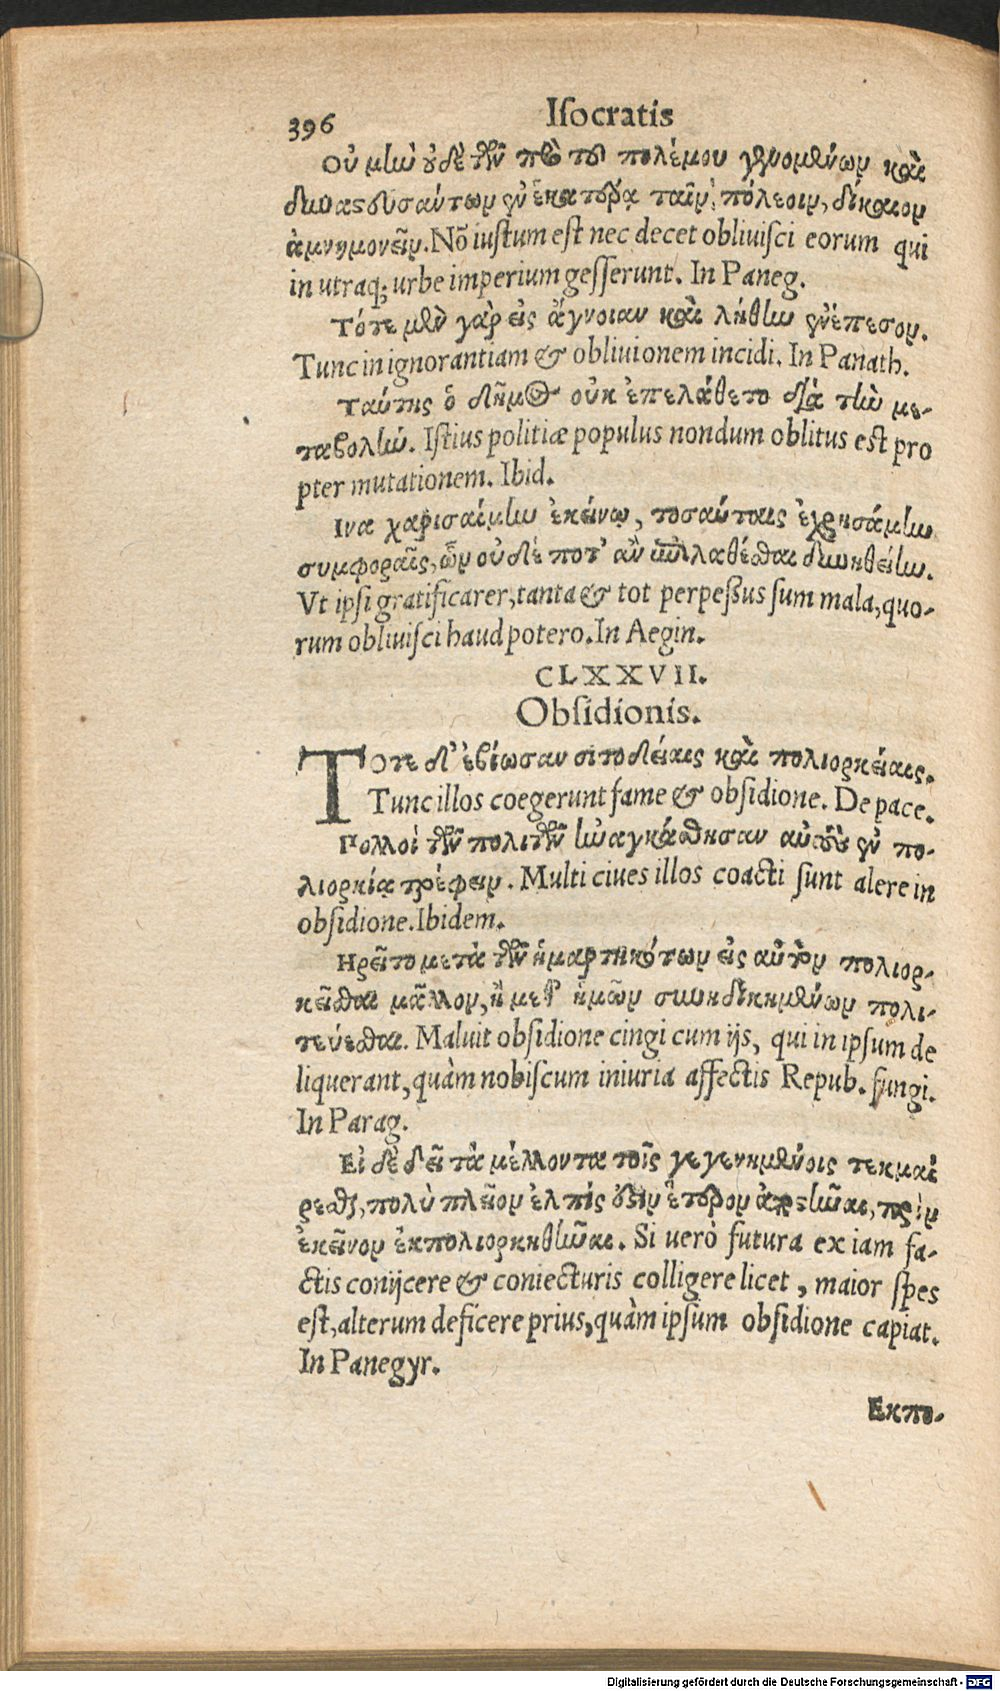 396 Iſocratis
Οὐ μὴν οὐδὲ τῶν πρὸ τοῦ πολέμου γενομένων καὶ
δυναστευσάντων ἐν ἑκατέρᾳ ταῖν πόλεοιν, δίκαιον
ἀμνημονεῖν. Nō iuſtum eſt nec decet obliuiſci eorum qui
in utraq; urbe imperium geſſerunt. In Paneg.
Τότε μὲν γὰρ εἰς ἄγνοιαν καὶ λήθην ἐνέπεσον.
Tunc in ignorantiam & obliuionem incidi. In Panath.
Ταύτης ὁ δῆμος οὐκ ἐπελάθετο διὰ τὴν με-
ταβολήν. Iſtius politiæ populus nondum oblitus eſt pro
pter mutationem. Ibid.
Ινα χαρισαίμην ἐκείνῳ, τοσαύταις ἐχρησάμην
συμφοραῖς, ὧν οὐδέ ποτ' ἂν ἐπιλαθέσθαι δυνηθείην.
Vt ipſi gratificarer, tanta & tot perpeßus ſum mala, quo-
rum obliuiſci haud potero. In Aegin.
CLXXVII.
Obſidionis.
ΤΟτε δ' ἐβίωσαν σιτοδείαις καὶ πολιορκείαις.
Tunc illos coegerunt fame & obſidione. De pace.
Πολλοὶ τῶν πολιτῶν ἠναγκάσθησαν αὐτοὺς ἐν πο-
λιορκίᾳ τρέφειν. Multi ciues illos coacti ſunt alere in
obſidione. Ibidem.
Ηρεῖτο μετὰ τῶν ἡμαρτηκότων εἰς αὐτὸν πολιορ-
κεῖσθαι μᾶλλον, ἢ μεθ' ἡμῶν συνηδικημένων πολι-
τεύεσθαι. Maluit obſidione cingi cum ijs, qui in ipſum de
liquerant, quàm nobiſcum iniuria affectis Repub. fungi.
In Parag.
Εἰ δὲ δεῖ τὰ μέλλοντα τοῖς γεγενημένοις τεκμαί
ρεσθαι, πολὺ πλεῖον ἐλπίς ἐστιν ἕτερον ἀποστῆναι, πρὶν
ἐκεῖνον ἐκπολιορκηθῆναι. Si uerò futura ex iam fa-
ctis conijcere & coniecturis colligere licet, maior ſpes
eſt, alterum deficere prius, quàm ipſum obſidione capiat.
In Panegyr.
Εκπο-
Digitalisierung gefördert durch die Deutsche Forschungsgemeinschaft - DFG